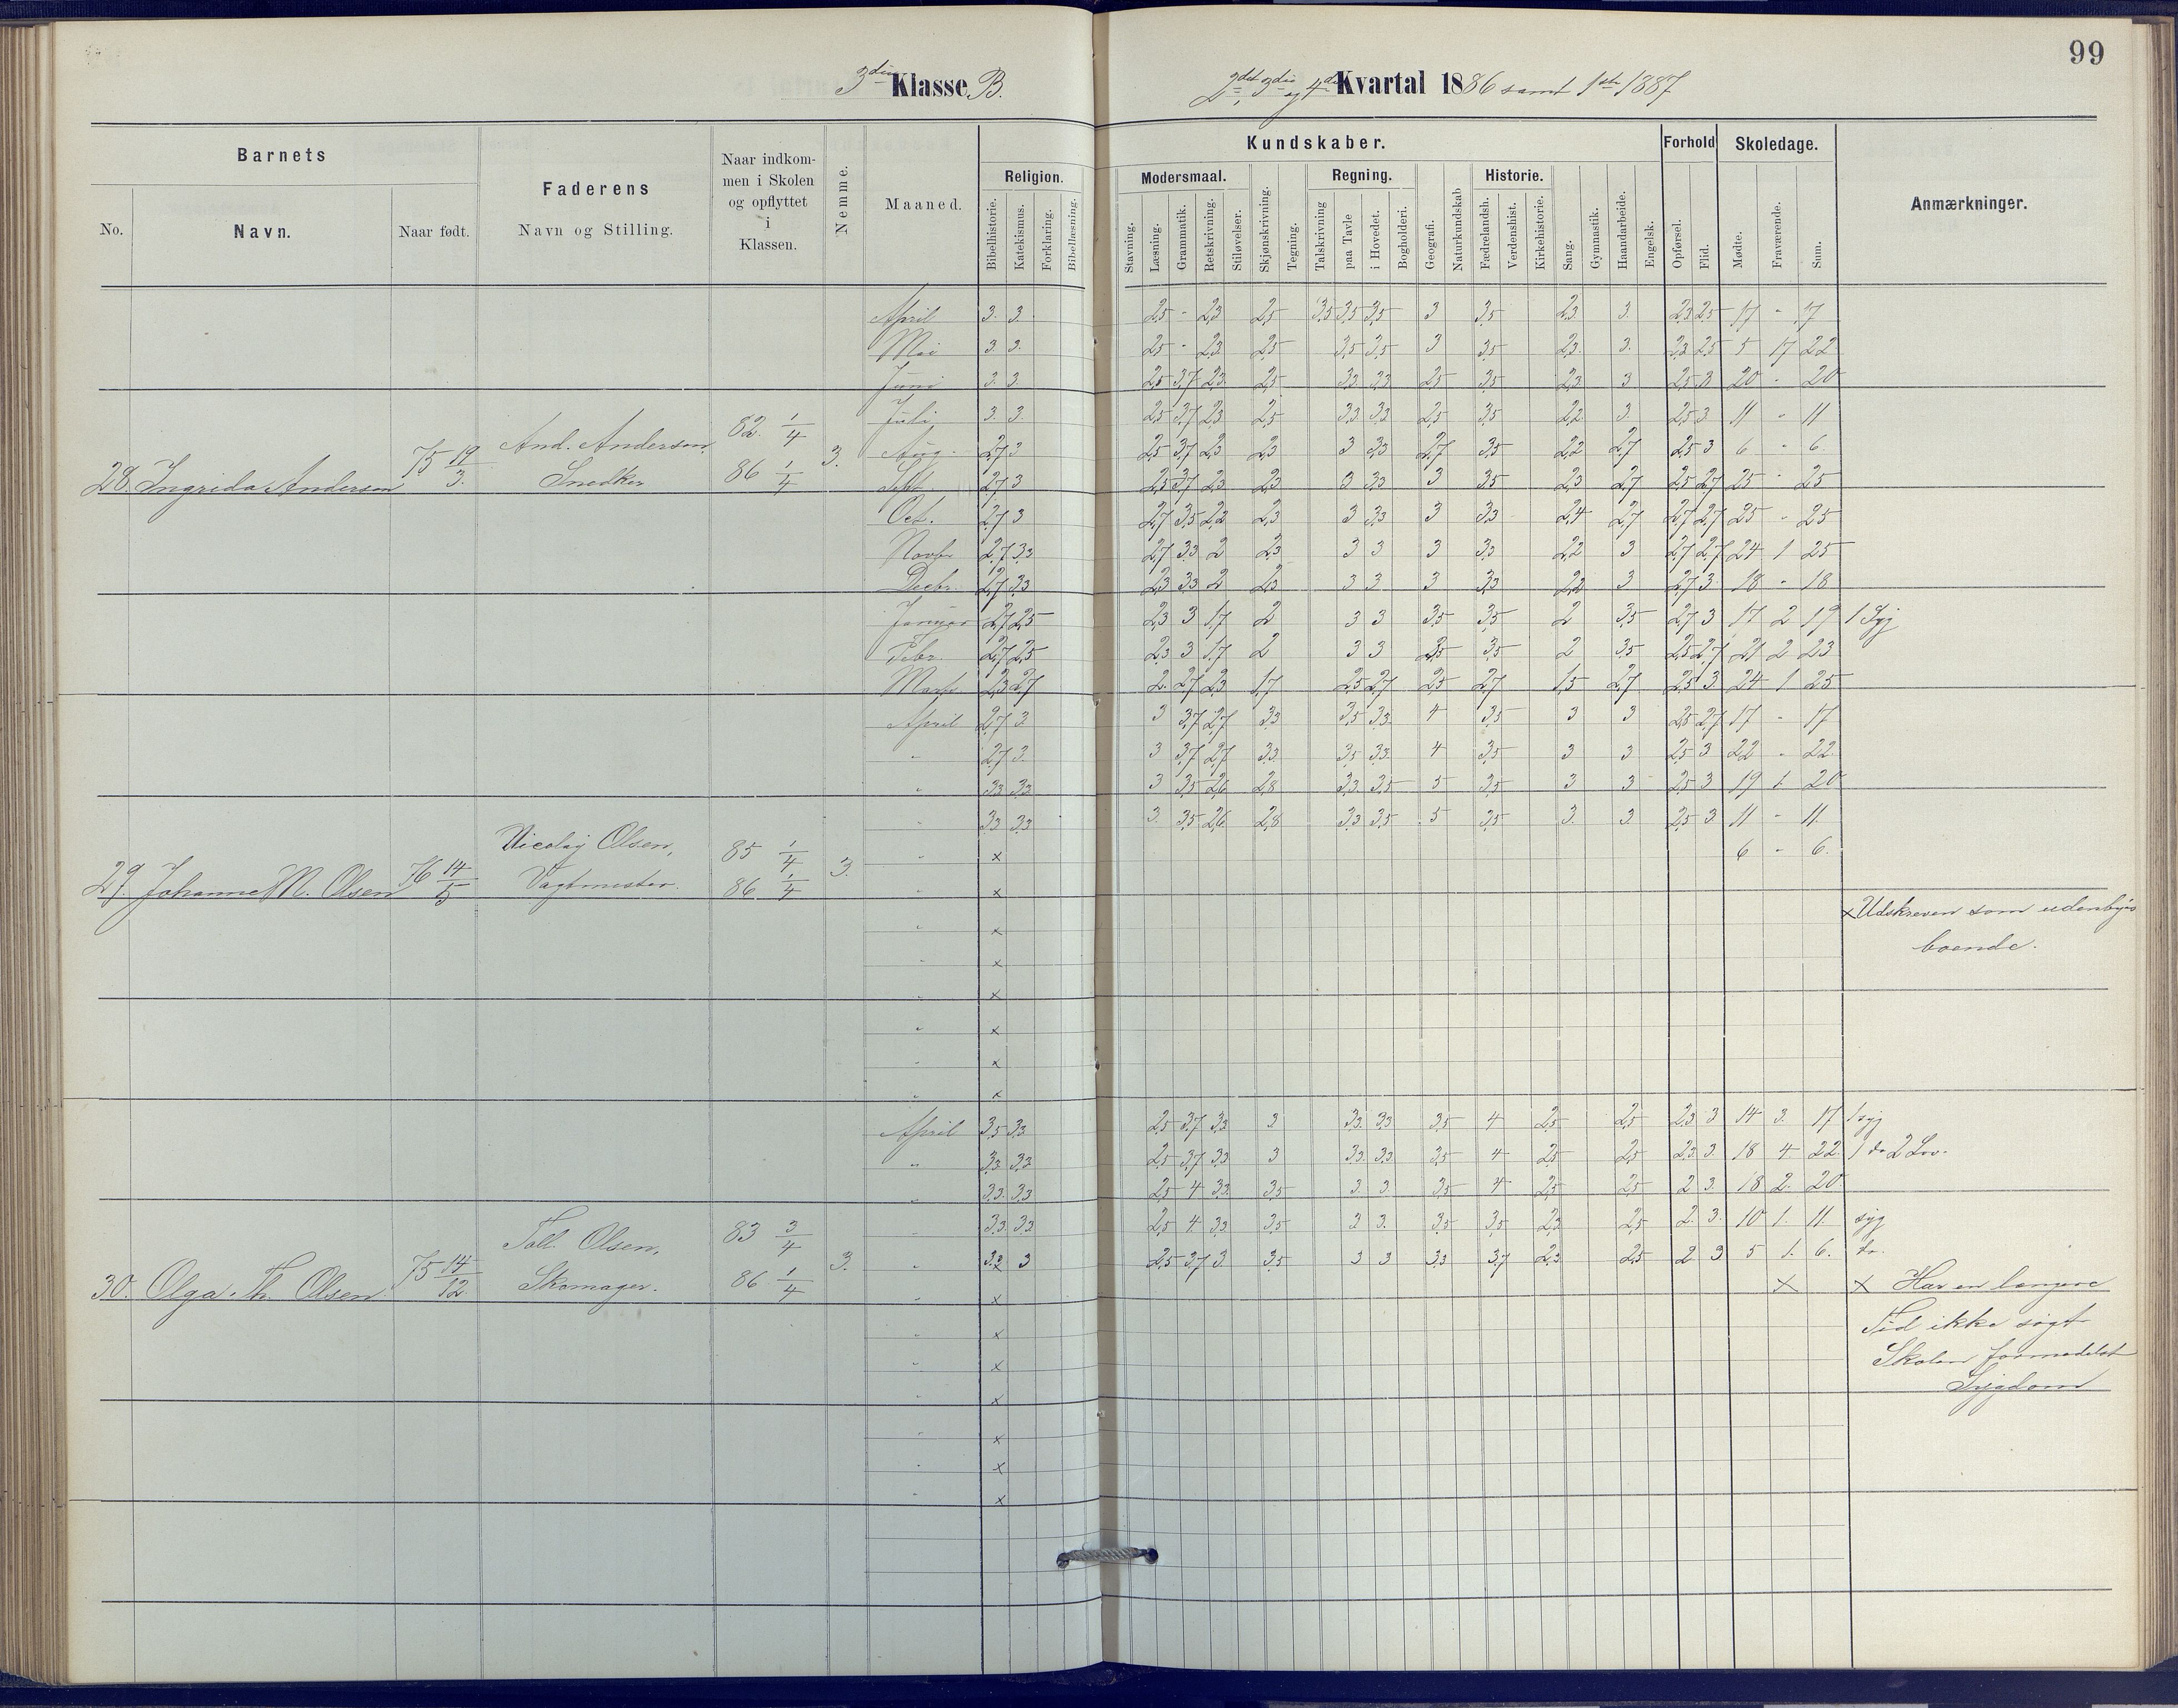 99
3die Klasse B.
2det, 3die og 4de Kvartal 1886 samt 1ste 1887
Barnets
No.
Navn.
Naar født.
Faderens
Navn og Stilling.
Naar indkom-
men i Skolen
og opflyttet
i
Klassen.
Nemme.
Maaned.
Kundskaber.
Religion.
Bibelhistorie.
Katekismus.
Forklaring.
Bibellæsning.
Modersmaal.
Stavning.
Læsning.
Grammatik.
Retskrivning.
Stiløvelser.
Skjønskrivning.
Tegning.
Regning.
Talskrivning
paa Tavle
i Hovedet.
Bogholderi.
Geografi.
Naturkundskab
Historie.
Fædrelandsh.
Verdenshist.
Kirkehistorie.
Sang.
Gymnastik.
Haandarbeide.
Engelsk.
Forhold
Opførsel.
Flid.
Skoledage.
Mødte.
Fraværende.
Sum.
Anmærkninger.
28. Ingrida Andersen 75 19/3. And. Andersen, Snedker 82. 1/4 86 1/4 3.
April 3. 3. 2,5 - 2,3 2,5 3,5 3,5 3,5 3 3,5 2,3 3. 2,3 2,5 17 - 17
Mai 3 3. 2,5 - 2,3 2,5 3,5 3,5 3 3,5 2,3. 3. 2,3 2,5 5 17 22
Juni 3. 3. 2,5 3,7 2,3 2,5 3,3 3,3 2,5 3,5 2,3 3 2,5 3 20 - 20
Juli 3 3. 2,5 3,7 2,3 2,5 3,3 3,3 2,5 3,5 2,2 3 2,5 3 11 - 11
Aug. 2,7 3 2,5 3,7 2,3 2,3 3 3,3 2,7 3,5 2,2 2,7 2,5 3 6 - 6.
Sept 2,7 3 2,5 3,7 2,3 2,3 3 3,3 3 3,5 2,3 2,7 2,5 2,7 25 - 25
Oct. 2,7 3 2,7 3,5 2,2 2,3 3 3,3 3 3,3 2,4 2,7 2,7 2,7 25 - 25
Novbr 2,7 3,3 2,7 3,3 2 2,3 3 3 3 3,3 2,2 3 2,7 2,7 24 1 25
Decbr. 2,7 3,3 2,3 3,3 2 2,3 3 3 3 3,3 2,2 3 2,7 3 18 - 18
Januar 2,7 2,5 2,3 3 1,7 2 3 3 3,5 3,5 2 3,5 2,7 3 17 2 19 1 Syg
Febr. 2,7 2,5 2,3 3 1,7 2 3 3 3,5 2 3,5 2,5 2,7 21 2 23
Marts 2,3 2,7 2. 2,7 2,3 1,7 2,5 2,7 2,5 2,7 1,5 2,7 2,5 3 24 1 25
29. Johanne M. Olsen 76 14/5 Nicolay Olsen, Vagtmester. 85 1/4 86 1/4 3.
April 2,7 3 3 3,7 2,7 3,3 3,5 3,3 4 3,5 3 3 2,5 2,7 17 - 17
" 2,7 3. 3 3,7 2,7 3,3 3,5 3,3. 4 3,5 3 3 2,5 3 22 - 22.
" 3,3 3,3 3 3,5 2,6 2,8 3,3 3,5 5 3,5 3 3 2,5 3 19 1 20
" 3,3 3,3 3. 3,5 2,6 2,8 3,3 3,5 5 3,5 3. 3 2,5 3 11 - 11.
" x 6 - 6.
" x
x Udskreven som udenbyes
boende.
" x
" x
" x
" x
" x
" x
30. Olga Th. Olsen 75 14/12. Toll. Olsen, Skomager. 83 3/4 86 1/4 3.
April 3,5 3,3 2,5 3,7 3,3 3 3,3 3,3 3,5 4 2,5 2,5 2,3 3 14 3. 17 1 syg
" 3,3 3,3 2,5 3,7 3,3 3 3,3 3,3 3,5 4 2,5 2,5 2,3 3. 18 4 22. 1 do 2 Lov.
" 3,3 3,3 2,5 4 3,3 3,5 3. 3. 3,5 4 2,5 2,5 2 3. 18 2. 20.
" 3,3 3,3 2,5 4 3,3 3,5 3 3. 3,5 3,5 2,3 2,5 2. 3. 10 1. 11. syg
" 3,3 3 2,5 3,7 3 3,5 3 3 3,3 3,7 2,3 2,5 2 3 5 1. 6. do.
" x x x Har en længere
Tid ikke søgt
Skolen formedelst
Sygdom
" x
" x
" x
" x
" x
" x